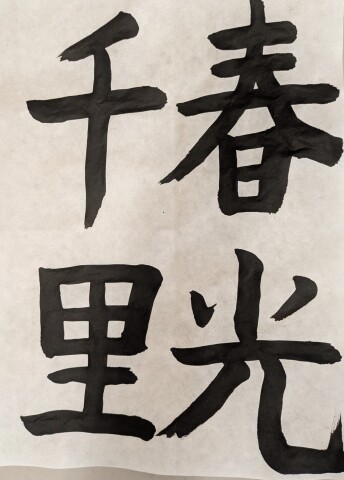 春光
千里